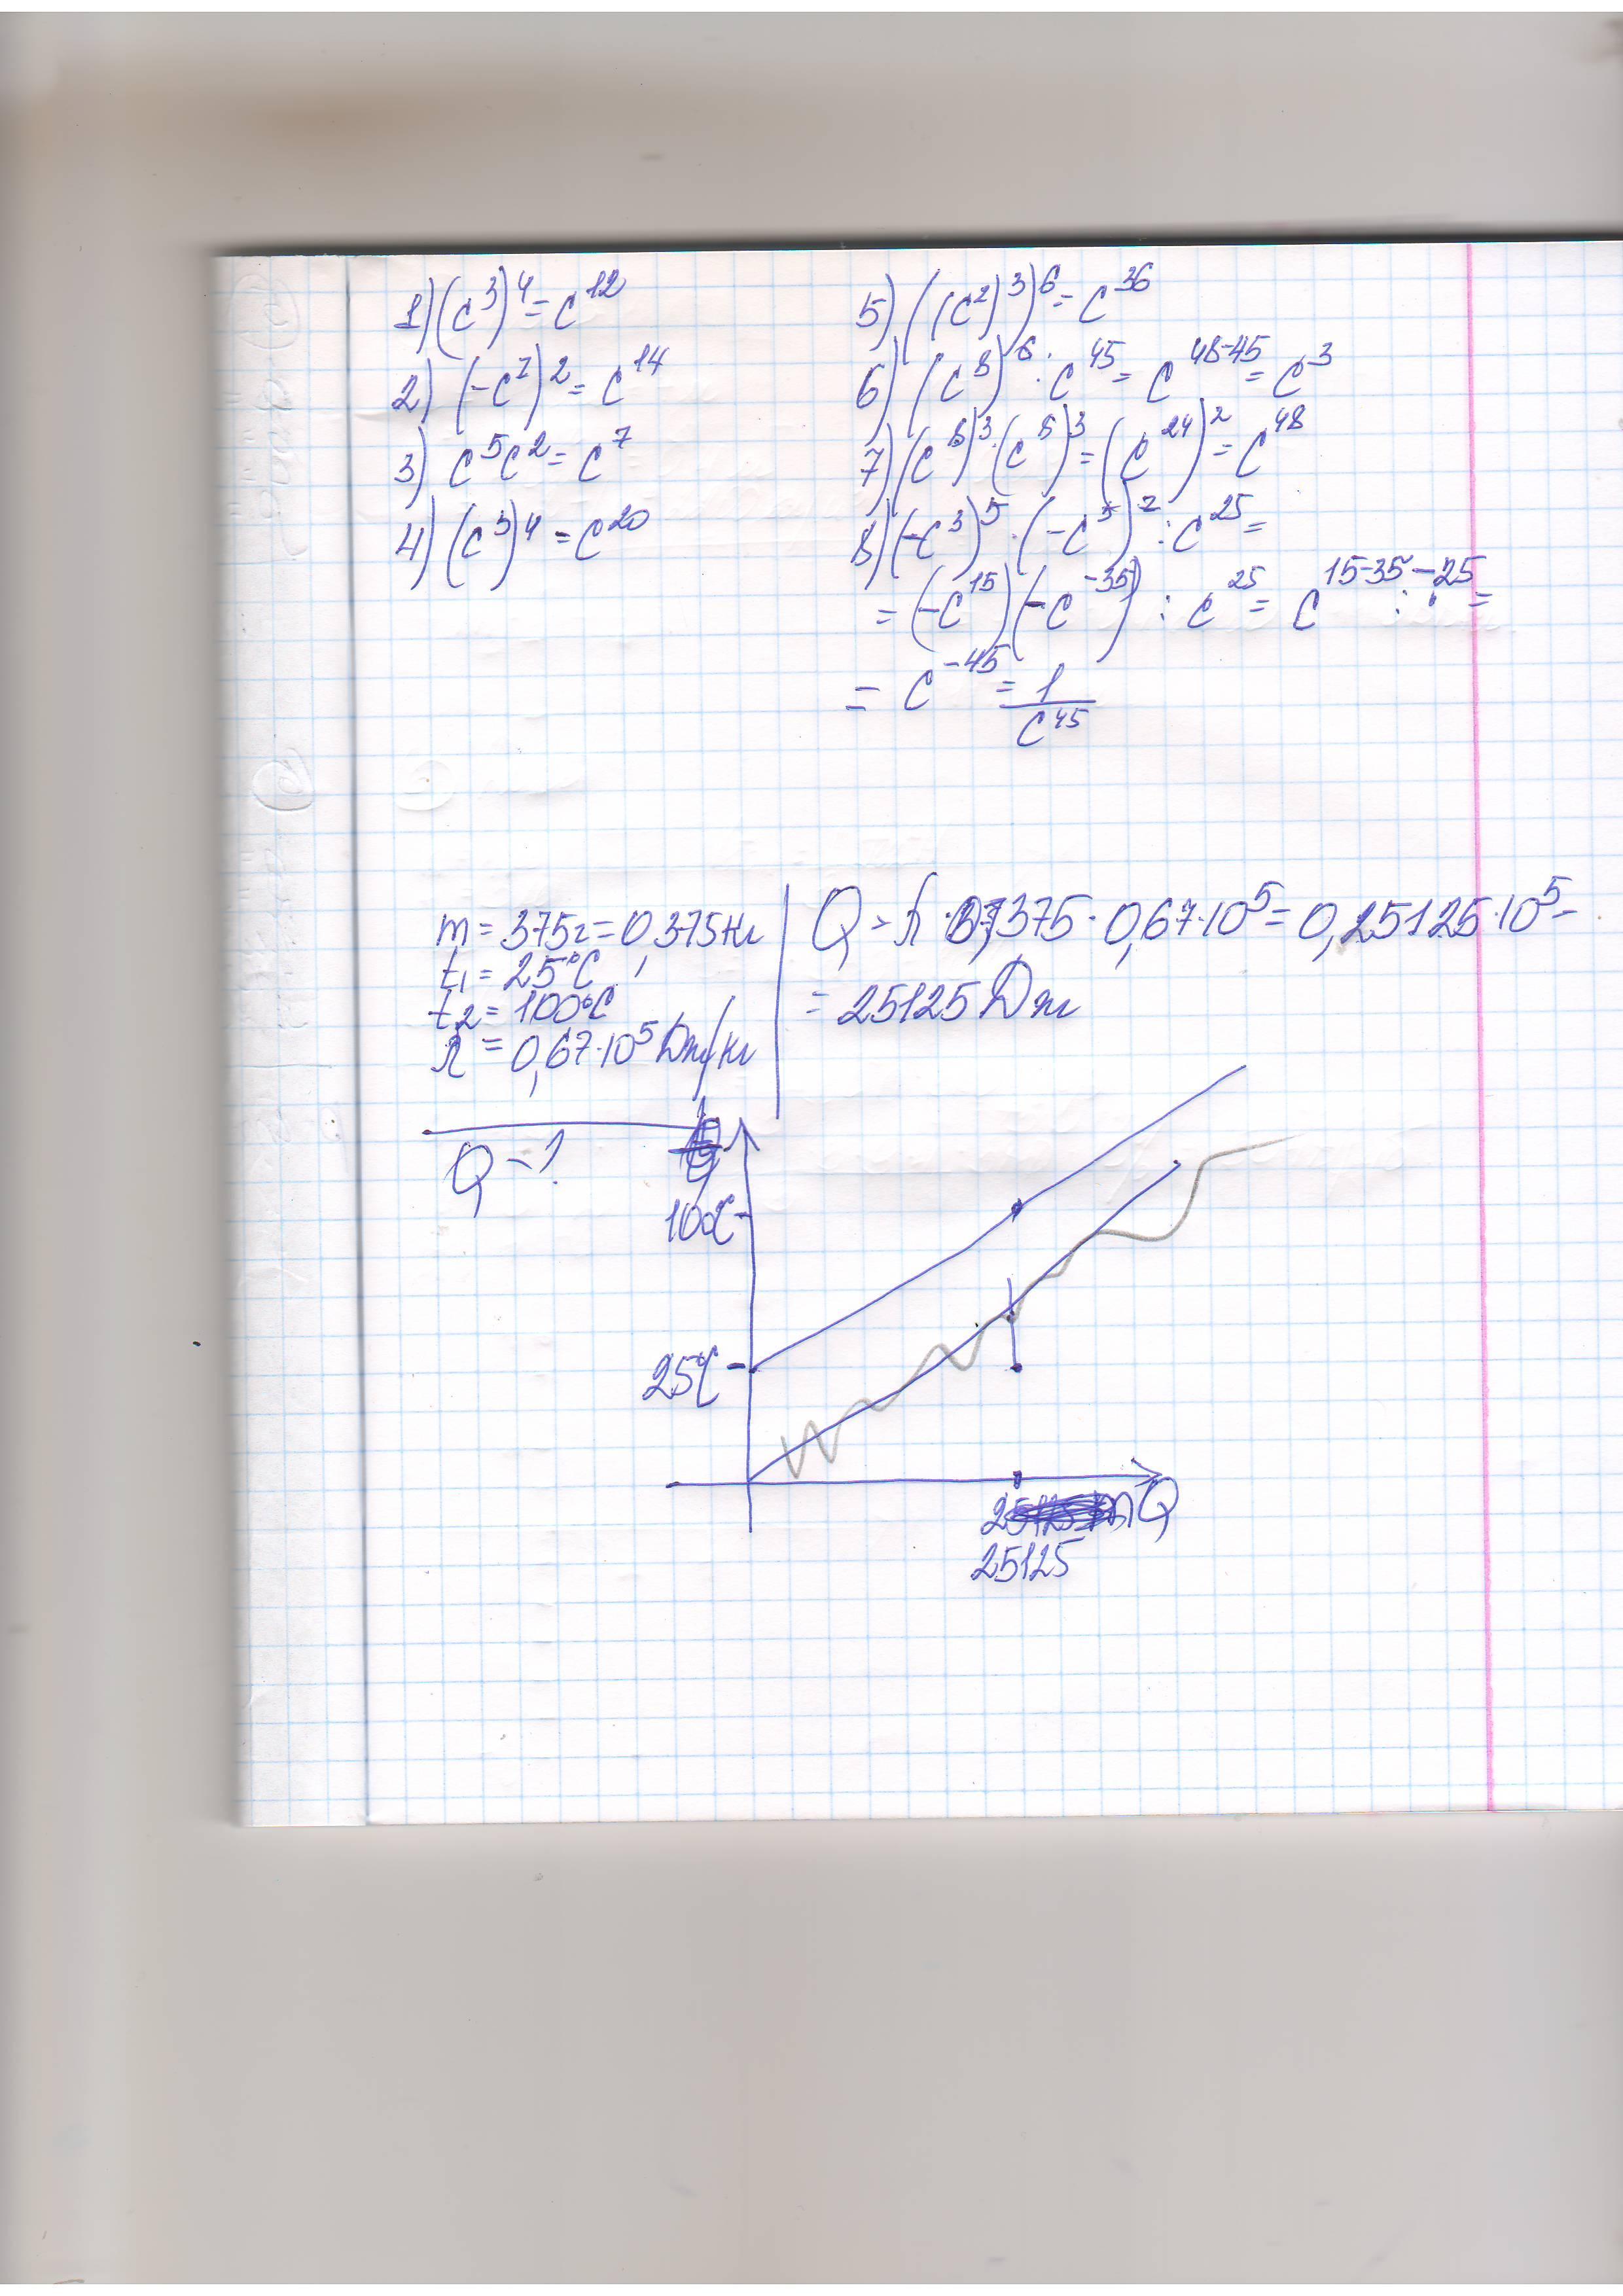 1) (c³)⁴ = c¹²
2) (-c⁷)² = c¹⁴
3) c⁵c² = c⁷
4) (c⁵)⁴ = c²⁰
5) ((c²)³)⁶ = c³⁶
6) (c⁸)⁶ : c⁴⁵ = c⁴⁸⁻⁴⁵ = c³
7) (c⁸)³·(c⁸)³ = (c²⁴)² = c⁴⁸
8) (-c³)⁵ · (-c⁵)⁻⁷ : c²⁵ =
= (-c¹⁵)(-c⁻³⁵) : c²⁵ = c¹⁵⁻³⁵⁻²⁵ =
= c⁻⁴⁵ = 1/c⁴⁵
m = 375г = 0,375кг
t₁ = 25°C
t₂ = 100°C
λ = 0,67·10⁵ Дж/кг
Q - ?
Q = λ · 0,375 · 0,67·10⁵ = 0,25125·10⁵ =
= 25125 Дж
t
100°C
25°C
Q
25125